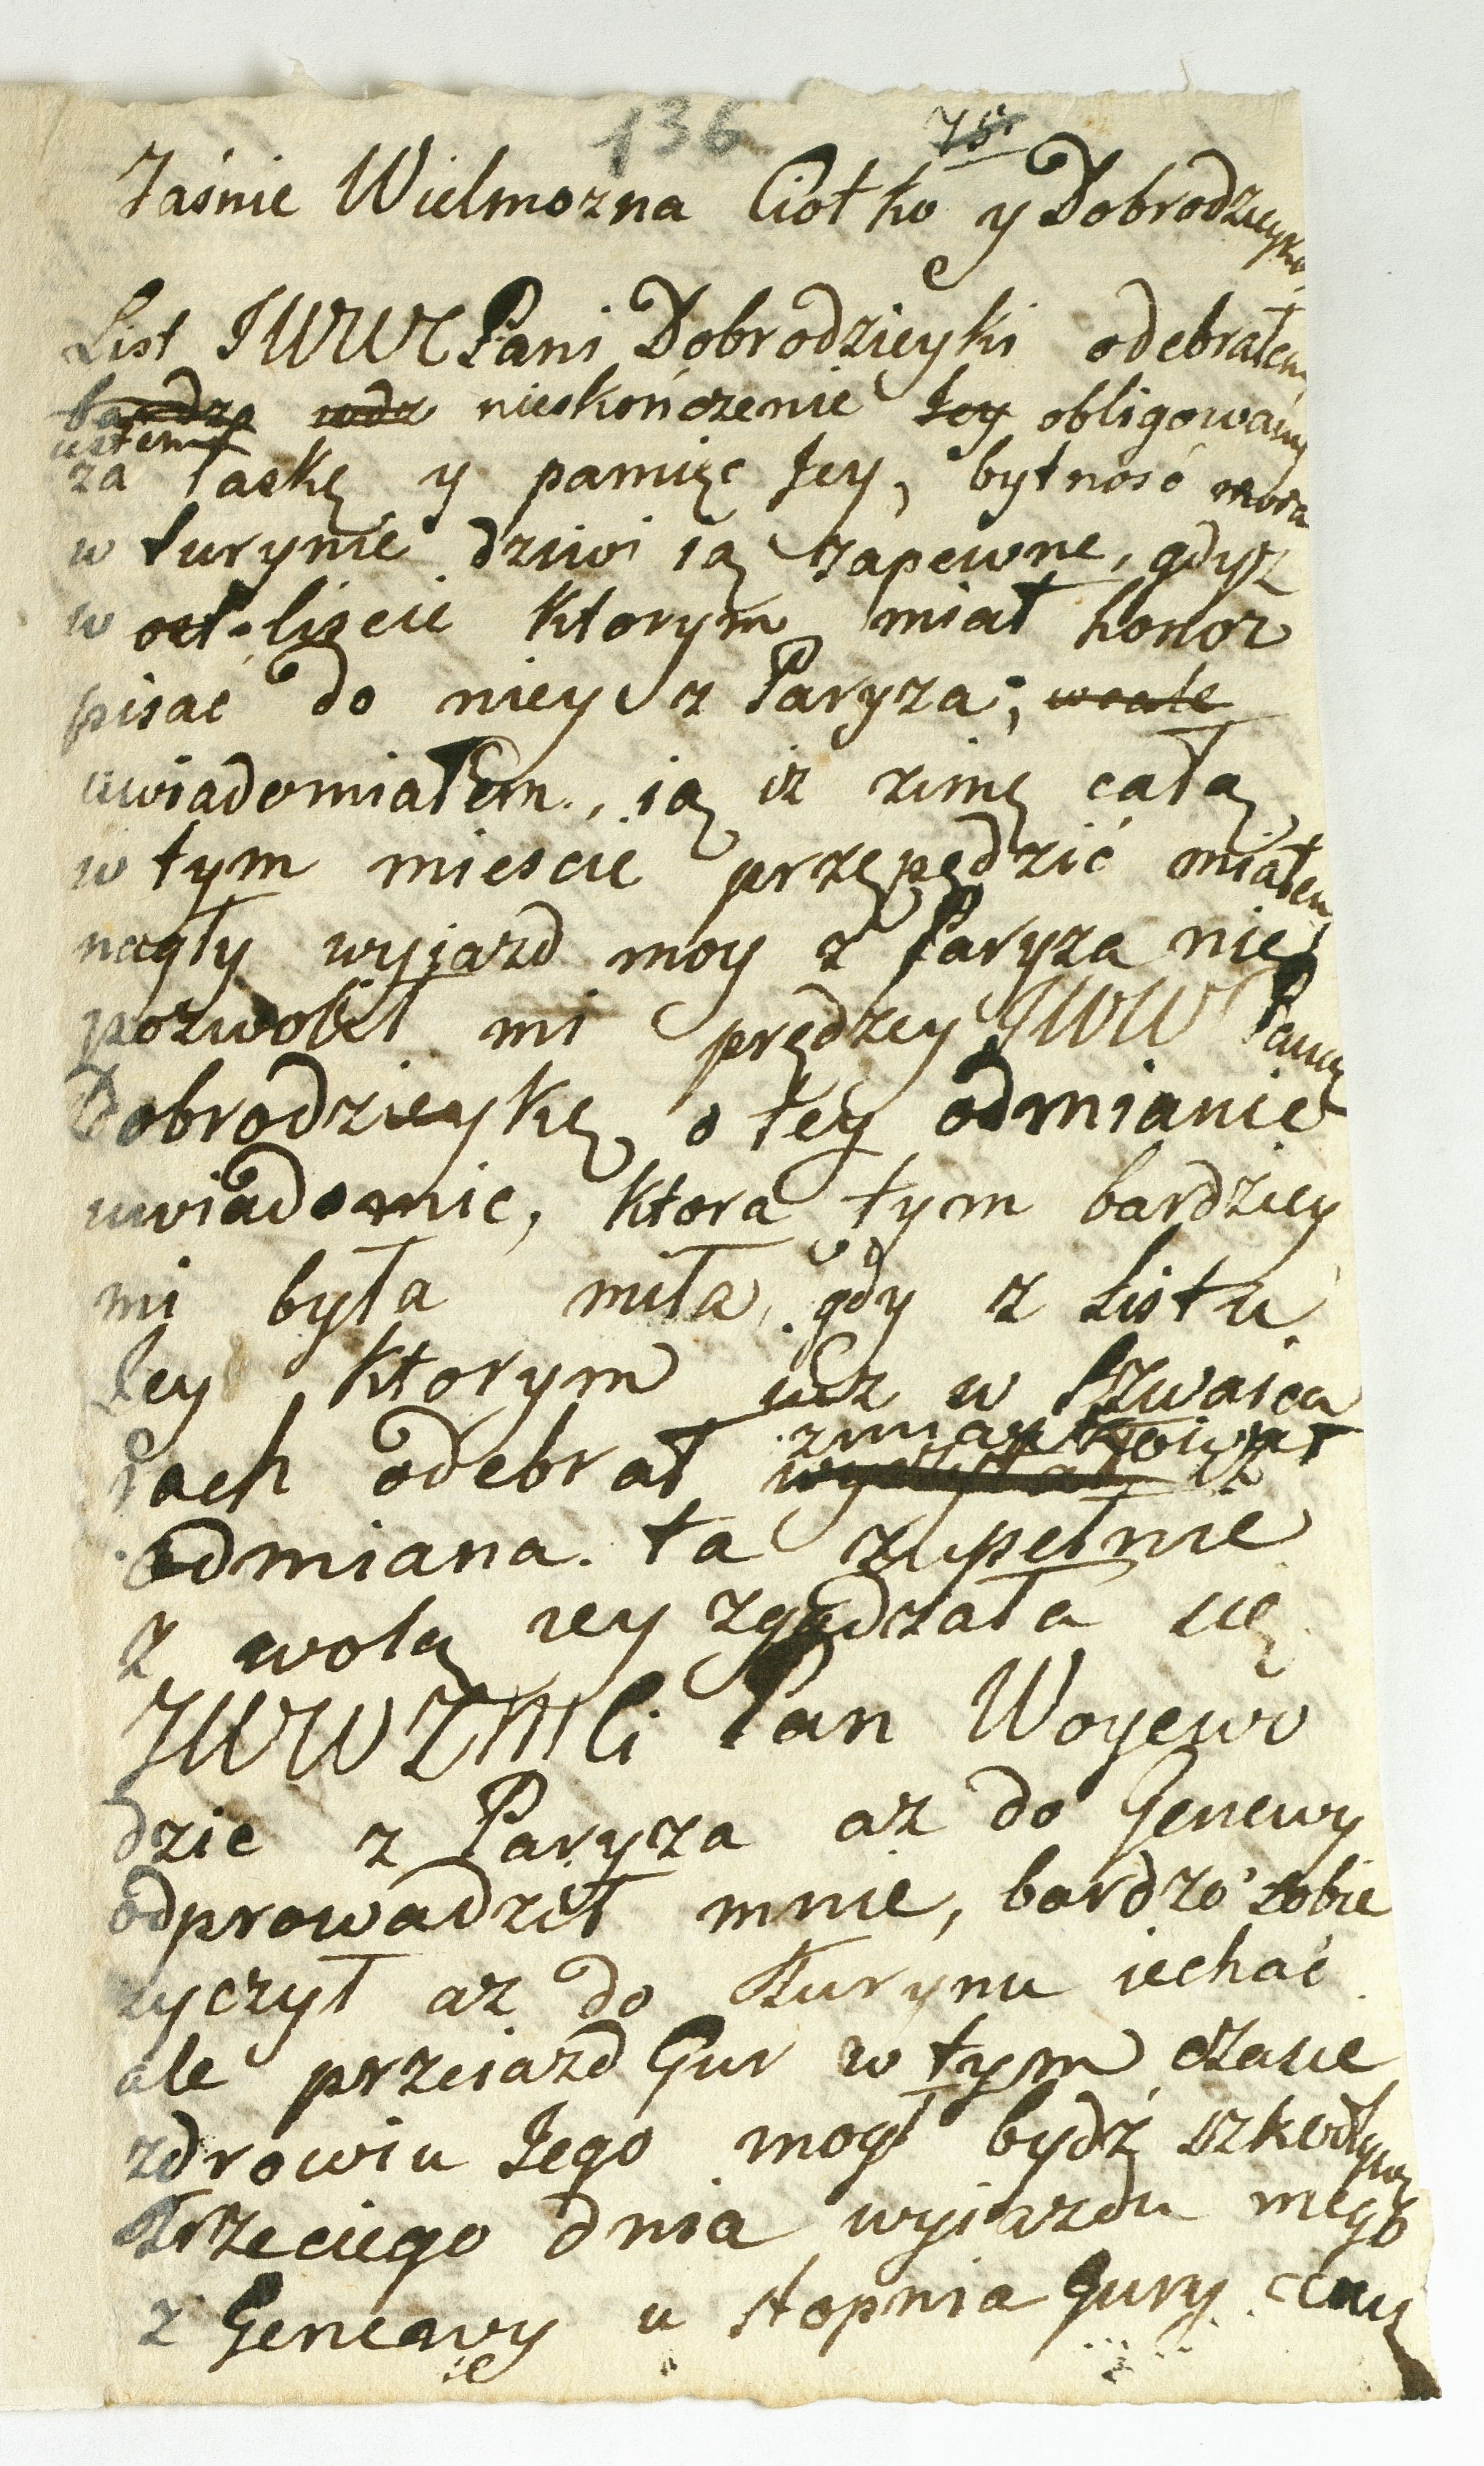 136 75
Jaśnie Wielmozna Ciotko y Dobrodzieyko
List JWW Pani Dobrodzieyki odebrałem
bardzo wdz nieskończenie Jey obligowany
ustem
za łaskę y pamięc Jey, bytność moia
w turynie dziwi ią zapewne, gdysz
w ost. liscie ktorym miał honor
pisać do niey z Paryza; wcale
uwiadomiałem, ią iz zimę całą
w tym miescie przępędzić miałem
nagły wyjazd moy z Paryza nie
pozwolił mi prędzey JWW Panią
Dobrodzieykę o tey odmianie
uwiadomic, ktora tym bardziey
mi była miła, gdy z Listu
Jey ktorym iusz w Szwaica
rach odebrał zmiarkował
iż
odmiana ta zupełnie
z wolą iey zgadzała się
JWW JMCi Pan Woyewo
dzic z Paryza az do Genewy
odprowadził mnie, bardzo sobie
zyczył az do Turynu iechać
ale przeiazd Gur w tym czasie
zdrowiu Jego mogł bydź szkodliwy
Trzeciego dnia wyiazdu mego
z Genewy u stopnia Gury